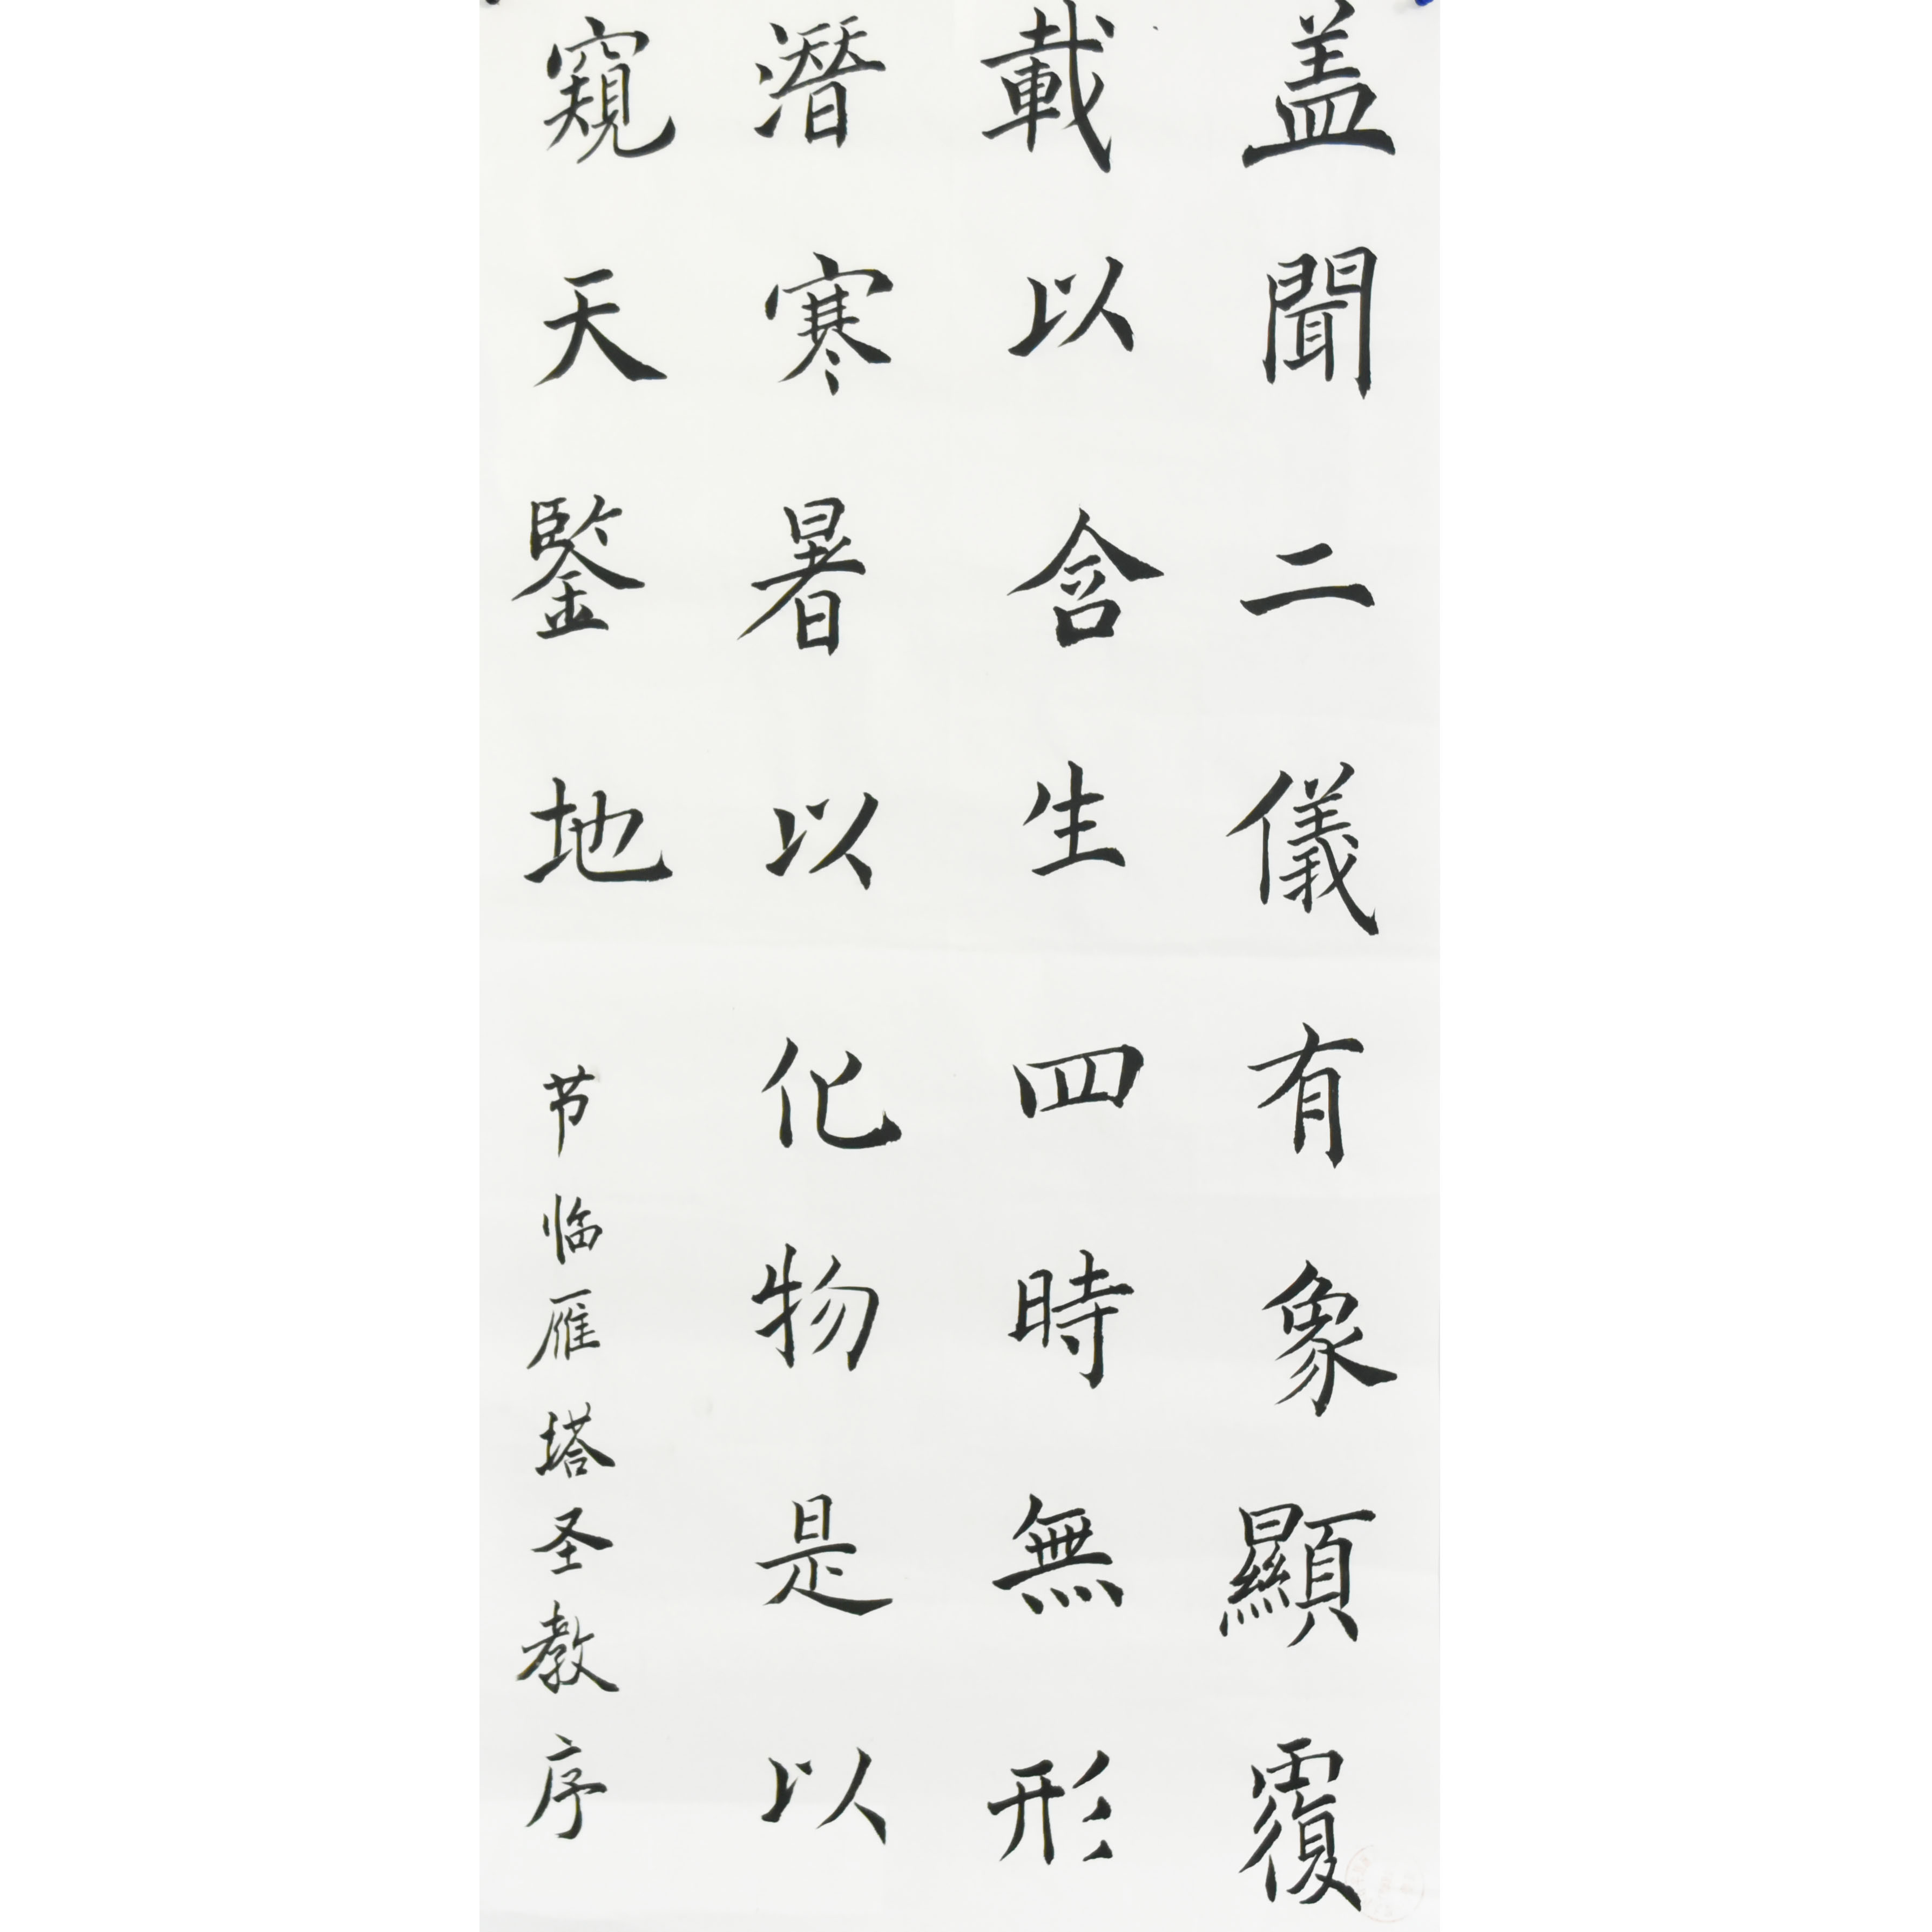 盖聞二儀有象顯覆
載以含生四時無形
潛寒暑以化物是以
窺天鑒地
节临雁塔圣教序